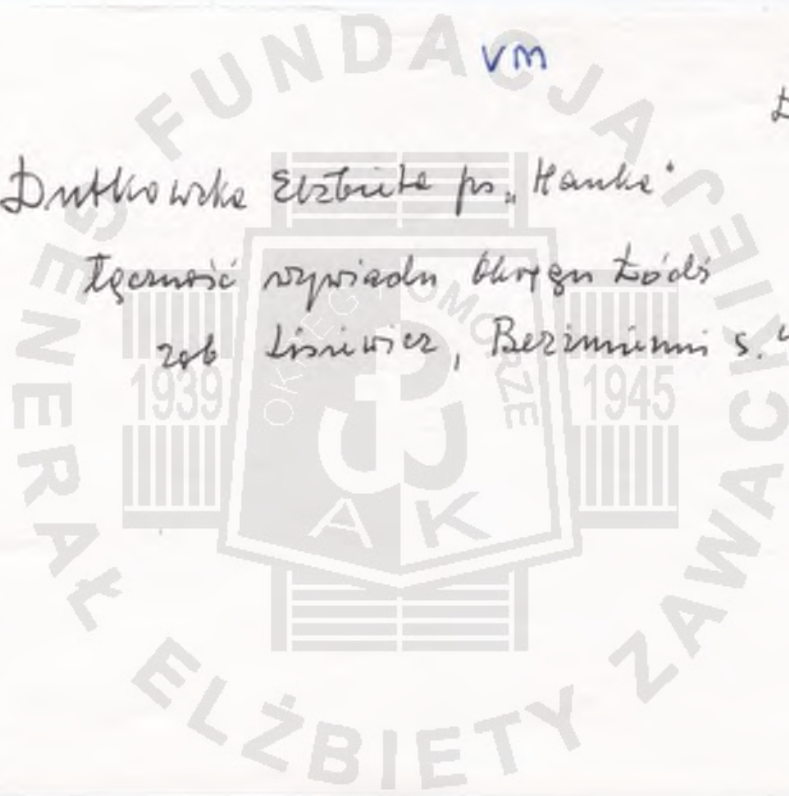 VM
Dutkowska Elżbieta ps. „Hanka"
łączność wywiadu Okręgu Łódź
zob Lisiewicz, Bezimienni s.
FUNDACJA
GENERAŁ ELŻBIETY ZAWACKIEJ
OKRĘG POMORZE
1939 1945
AK